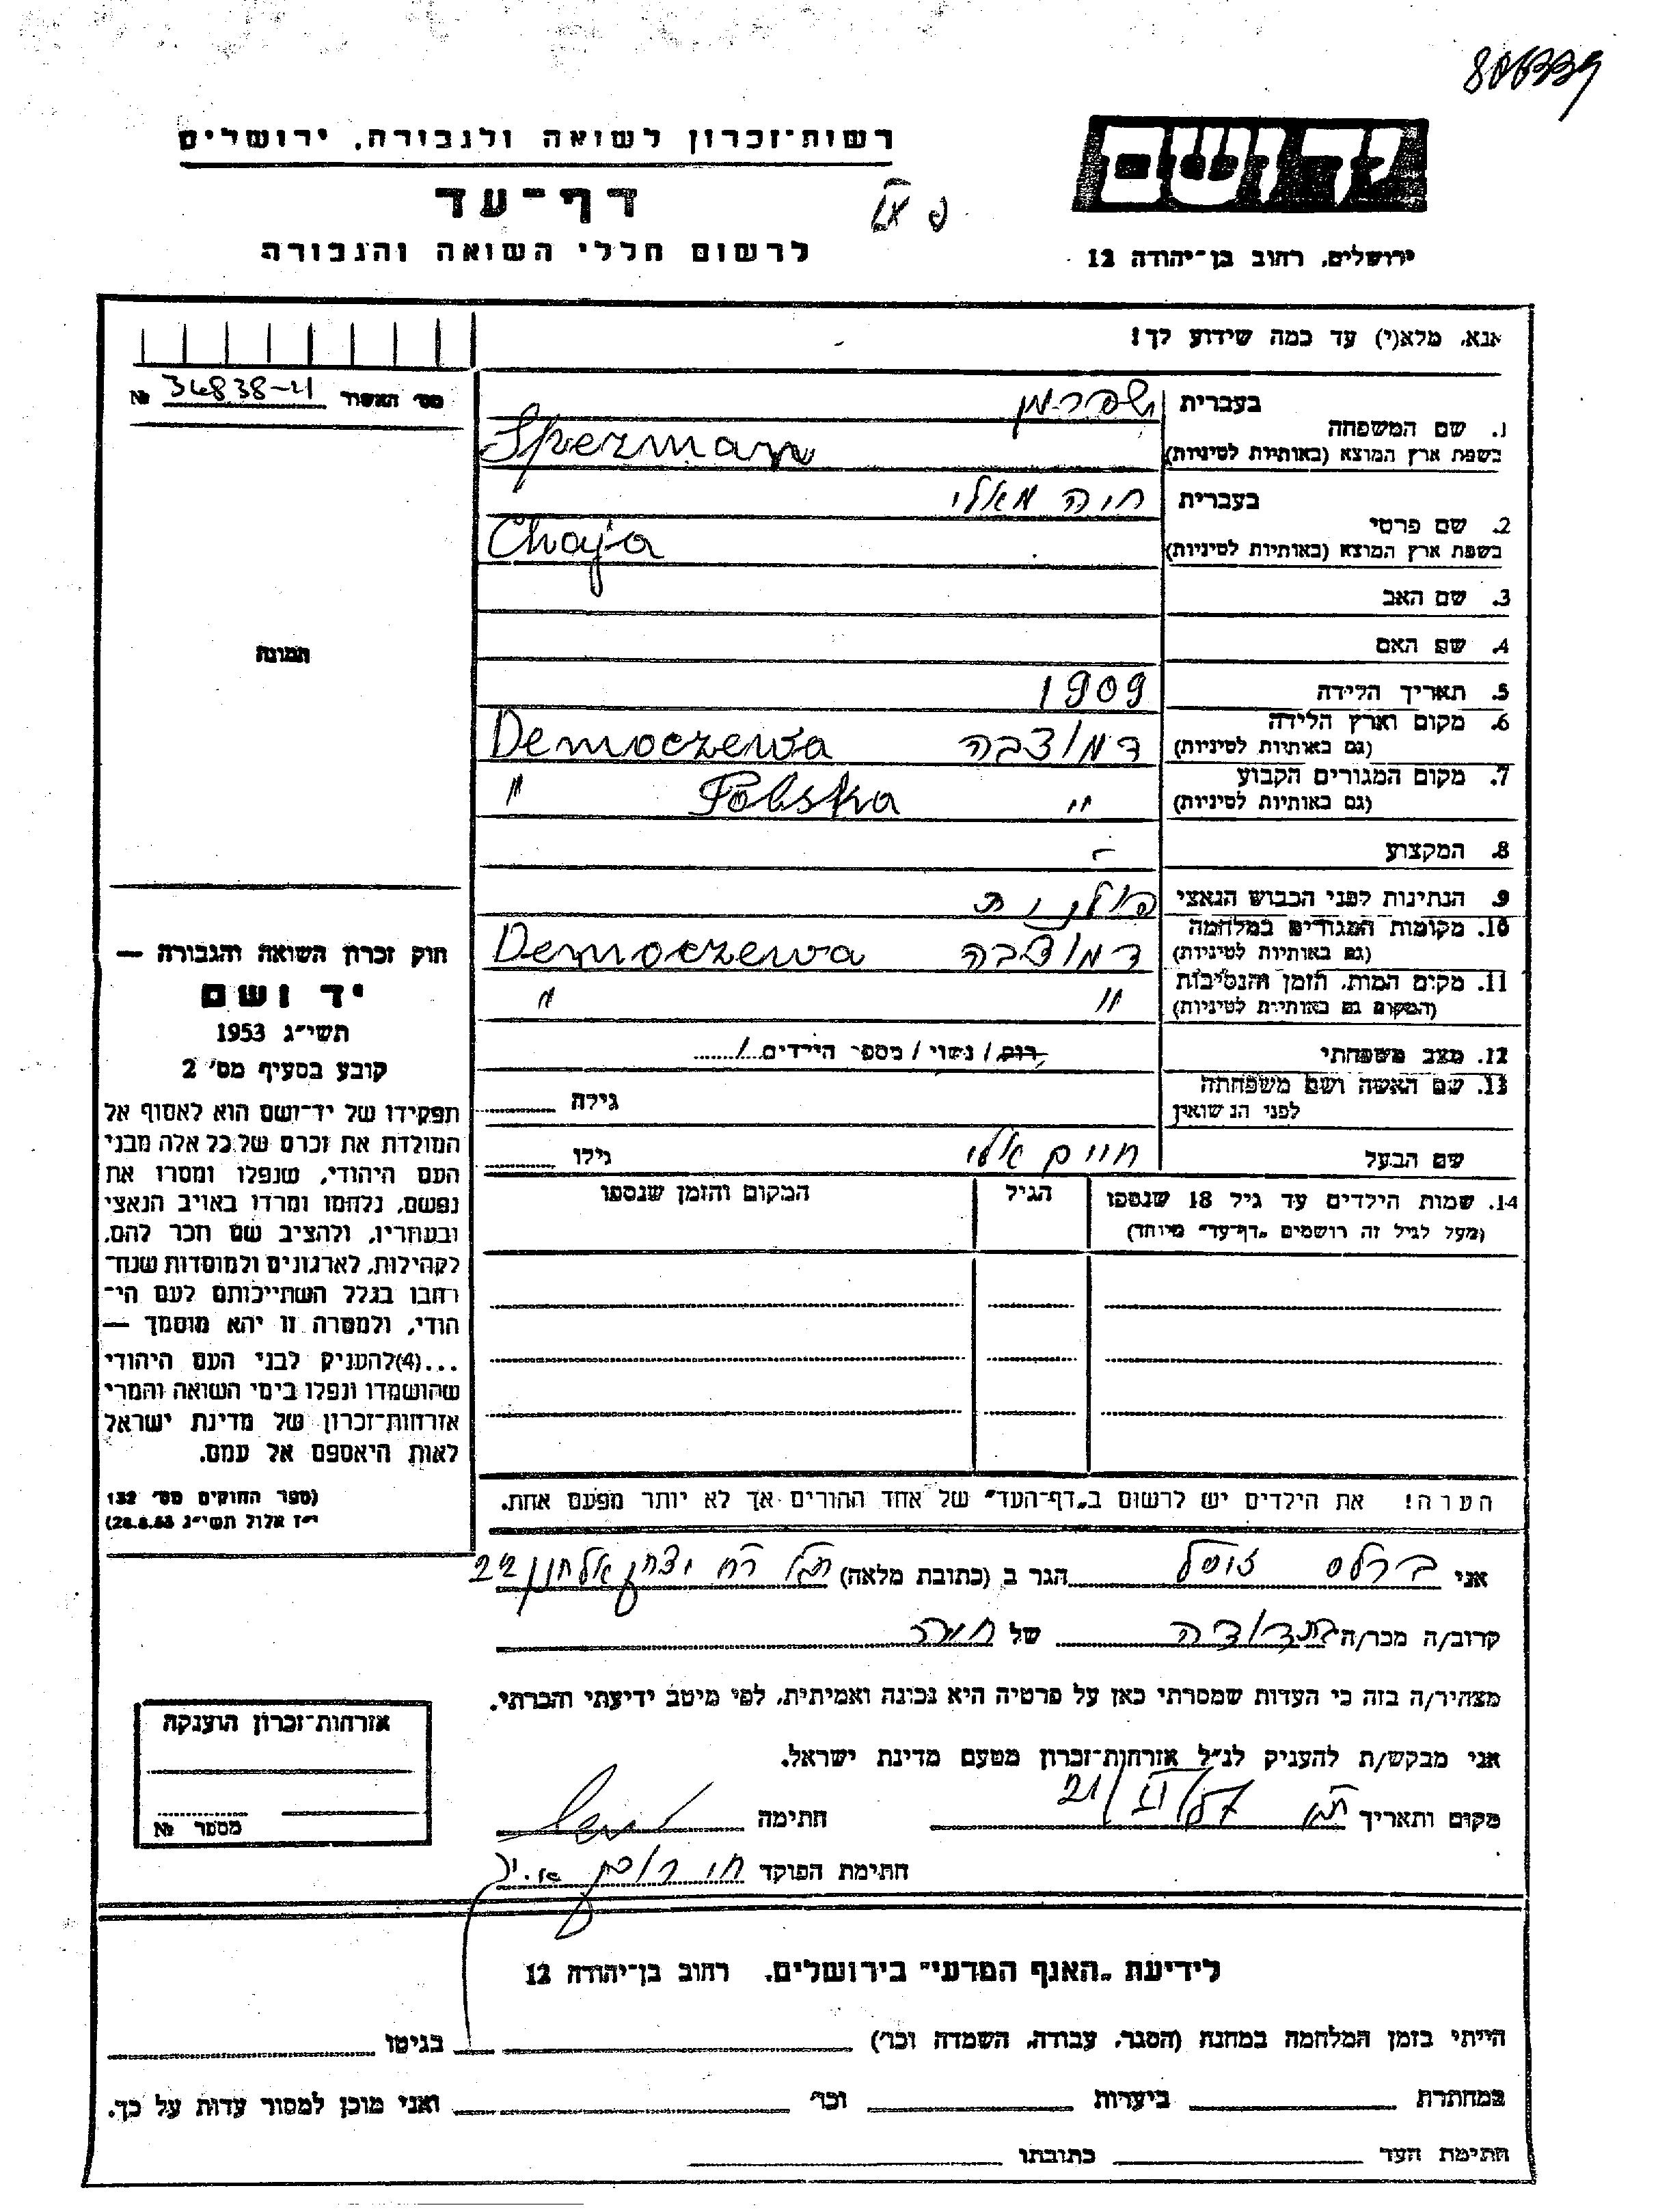 רשות־זכרון לשואה ולגבורה, ירושלים
דף־עד
לרשום חללי השואה והגבורה
יד ושם
ירושלים, רחוב בן־יהודה 12
אנא, מלא(י) עד כמה שידוע לך!
מס׳ האשור 34838-4 №
1. שם המשפחה בעברית שפרמן
בשפת ארץ המוצא (באותיות לטיניות) Sperman
2. שם פרטי בעברית חיה מאלי
בשפת ארץ המוצא (באותיות לטיניות) Chaja
3. שם האב
4. שם האם
5. תאריך הלידה 1909
6. מקום וארץ הלידה (גם באותיות לטיניות) דמוצבה Democzewa
7. מקום המגורים הקבוע (גם באותיות לטיניות) " Polska "
8. המקצוע -
9. הנתינות לפני הכבוש הנאצי פולנית
10. מקומות המגורים במלחמה (גם באותיות לטיניות) דמוצבה Democzewa
11. מקום המות, הזמן והנסיבות (המקום גם באותיות לטיניות) " "
12. מצב משפחתי רוק / נשוי / מספר הילדים /
13. שם האשה ושם משפחתה לפני הנשואין גילה
שם הבעל חיים אלי גילו
14. שמות הילדים עד גיל 18 שנספו הגיל המקום והזמן שנספו
(מעל לגיל זה רושמים „דף־עד״ מיוחד)
תמונה
חוק זכרון השואה והגבורה —
יד ושם
תשי״ג 1953
קובע בסעיף מס׳ 2
תפקידו של יד־ושם הוא לאסוף אל
המולדת את זכרם של כל אלה מבני
העם היהודי, שנפלו ומסרו את
נפשם, נלחמו ומרדו באויב הנאצי
ובעוזריו, ולהציב שם וזכר להם,
לקהילות, לארגונים ולמוסדות שנח־
רחבו בגלל השתייכותם לעם הי־
הודי, ולמטרה זו יהא מוסמך —
...(4)להעניק לבני העם היהודי
שהושמדו ונפלו בימי השואה והמרי
אזרחות־זכרון של מדינת ישראל
לאות היאספם אל עמם.
(ספר החוקים מס׳ 132
י״ז אלול תשי״ג 28.8.53)
הערה! את הילדים יש לרשום ב„דף־העד״ של אחד ההורים אך לא יותר מפעם אחת.
אני ברלס זוסל הגר ב (כתובת מלאה) רח יצחק אלחנן 22
קרוב/ה מכר/ה בת דודה של חיה
מצהיר/ה בזה כי העדות שמסרתי כאן על פרטיה היא נכונה ואמיתית, לפי מיטב ידיעתי והכרתי.
אני מבקש/ת להעניק לנ״ל אזרחות־זכרון מטעם מדינת ישראל.
מקום ותאריך 21/VI/57 חתימה
חתימת הפוקד
אזרחות־זכרון הוענקה
מספר №
לידיעת „האגף המדעי״ בירושלים, רחוב בן־יהודה 12
הייתי בזמן המלחמה במחנה (הסגר, עבודה, השמדה וכו׳) בגיטו
במחתרת ביערות וכו׳ ואני מוכן למסור עדות על כך.
חתימת העד כתובתו